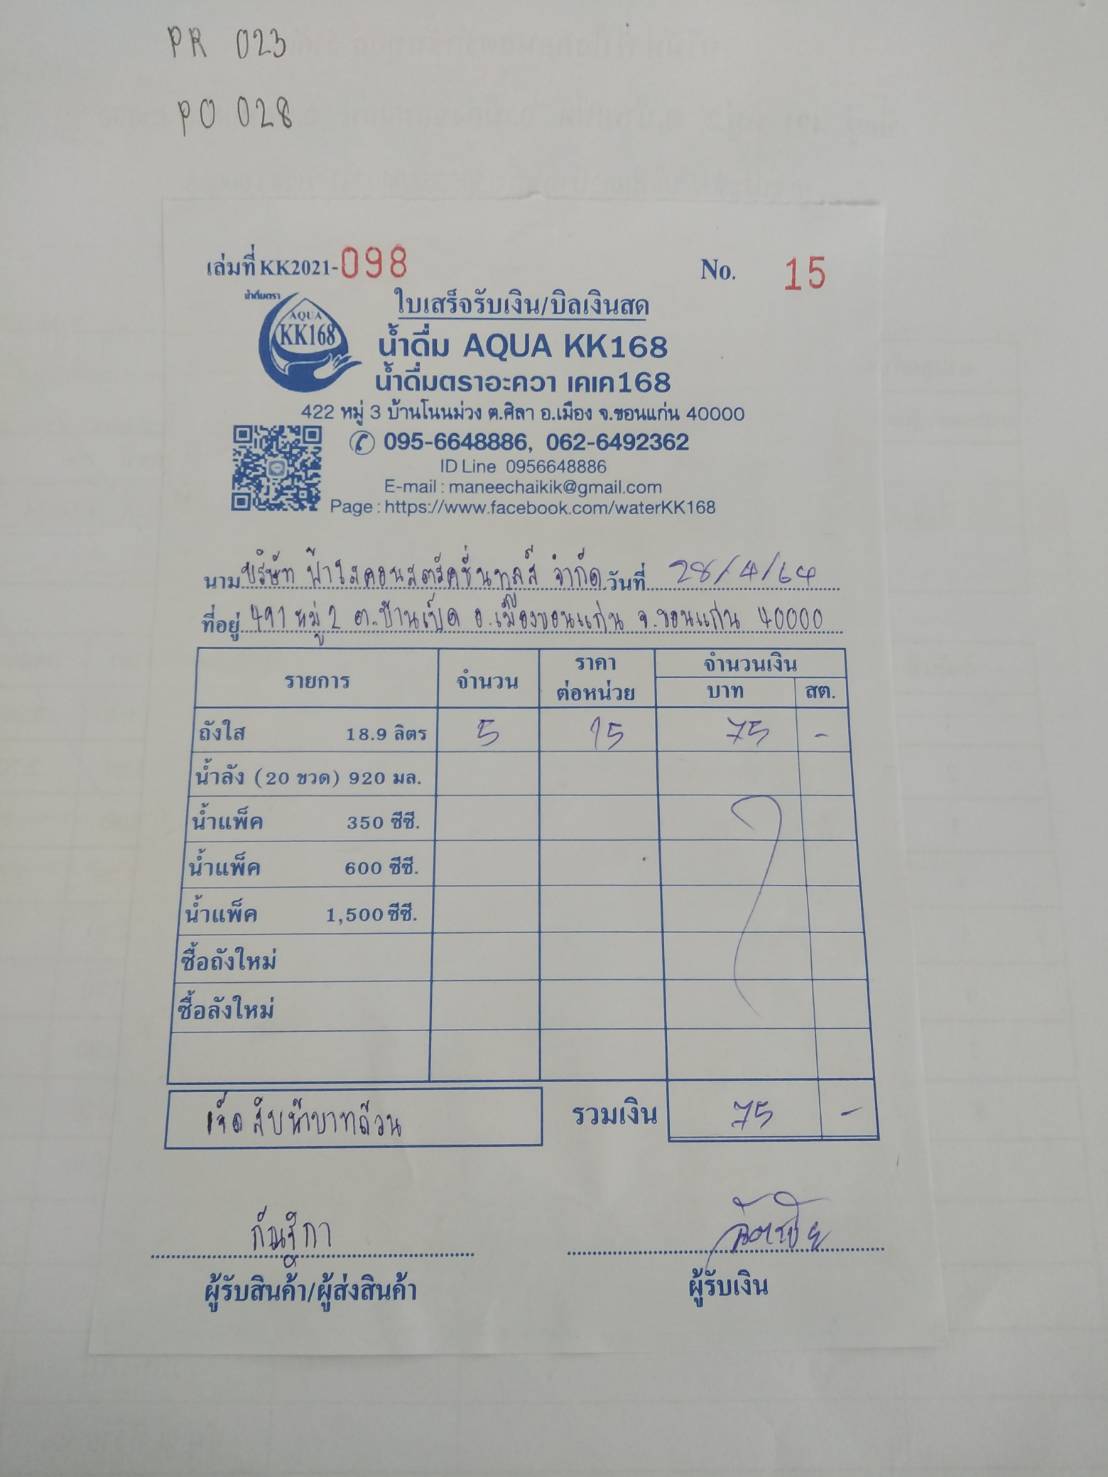 PR 023
PO 028
เล่มที่ KK2021-098 No. 15
น้ำดื่มตรา
AQUA
KK168
ใบเสร็จรับเงิน/บิลเงินสด
น้ำดื่ม AQUA KK168
น้ำดื่มตราอะควา เคเค168
422 หมู่ 3 บ้านโนนม่วง ต.ศิลา อ.เมือง จ.ขอนแก่น 40000
095-6648886, 062-6492362
ID Line 0956648886
E-mail : maneechaikik@gmail.com
Page : https://www.facebook.com/waterKK168
นาม บริษัท ฟ้าใสคอนสตรัคชั่นทูลส์ จำกัด วันที่ 28/4/64
ที่อยู่ 491 หมู่ 2 ต.บ้านเป็ด อ.เมืองขอนแก่น จ.ขอนแก่น 40000
รายการ จำนวน ราคาต่อหน่วย จำนวนเงิน
บาท สต.
ถังใส 18.9 ลิตร 5 15 75 -
น้ำลัง (20 ขวด) 920 มล.
น้ำแพ็ค 350 ซีซี.
น้ำแพ็ค 600 ซีซี.
น้ำแพ็ค 1,500 ซีซี.
ซื้อถังใหม่
ซื้อลังใหม่
เจ็ดสิบห้าบาทถ้วน รวมเงิน 75 -
กัณฐิกา
ผู้รับสินค้า/ผู้ส่งสินค้า ผู้รับเงิน